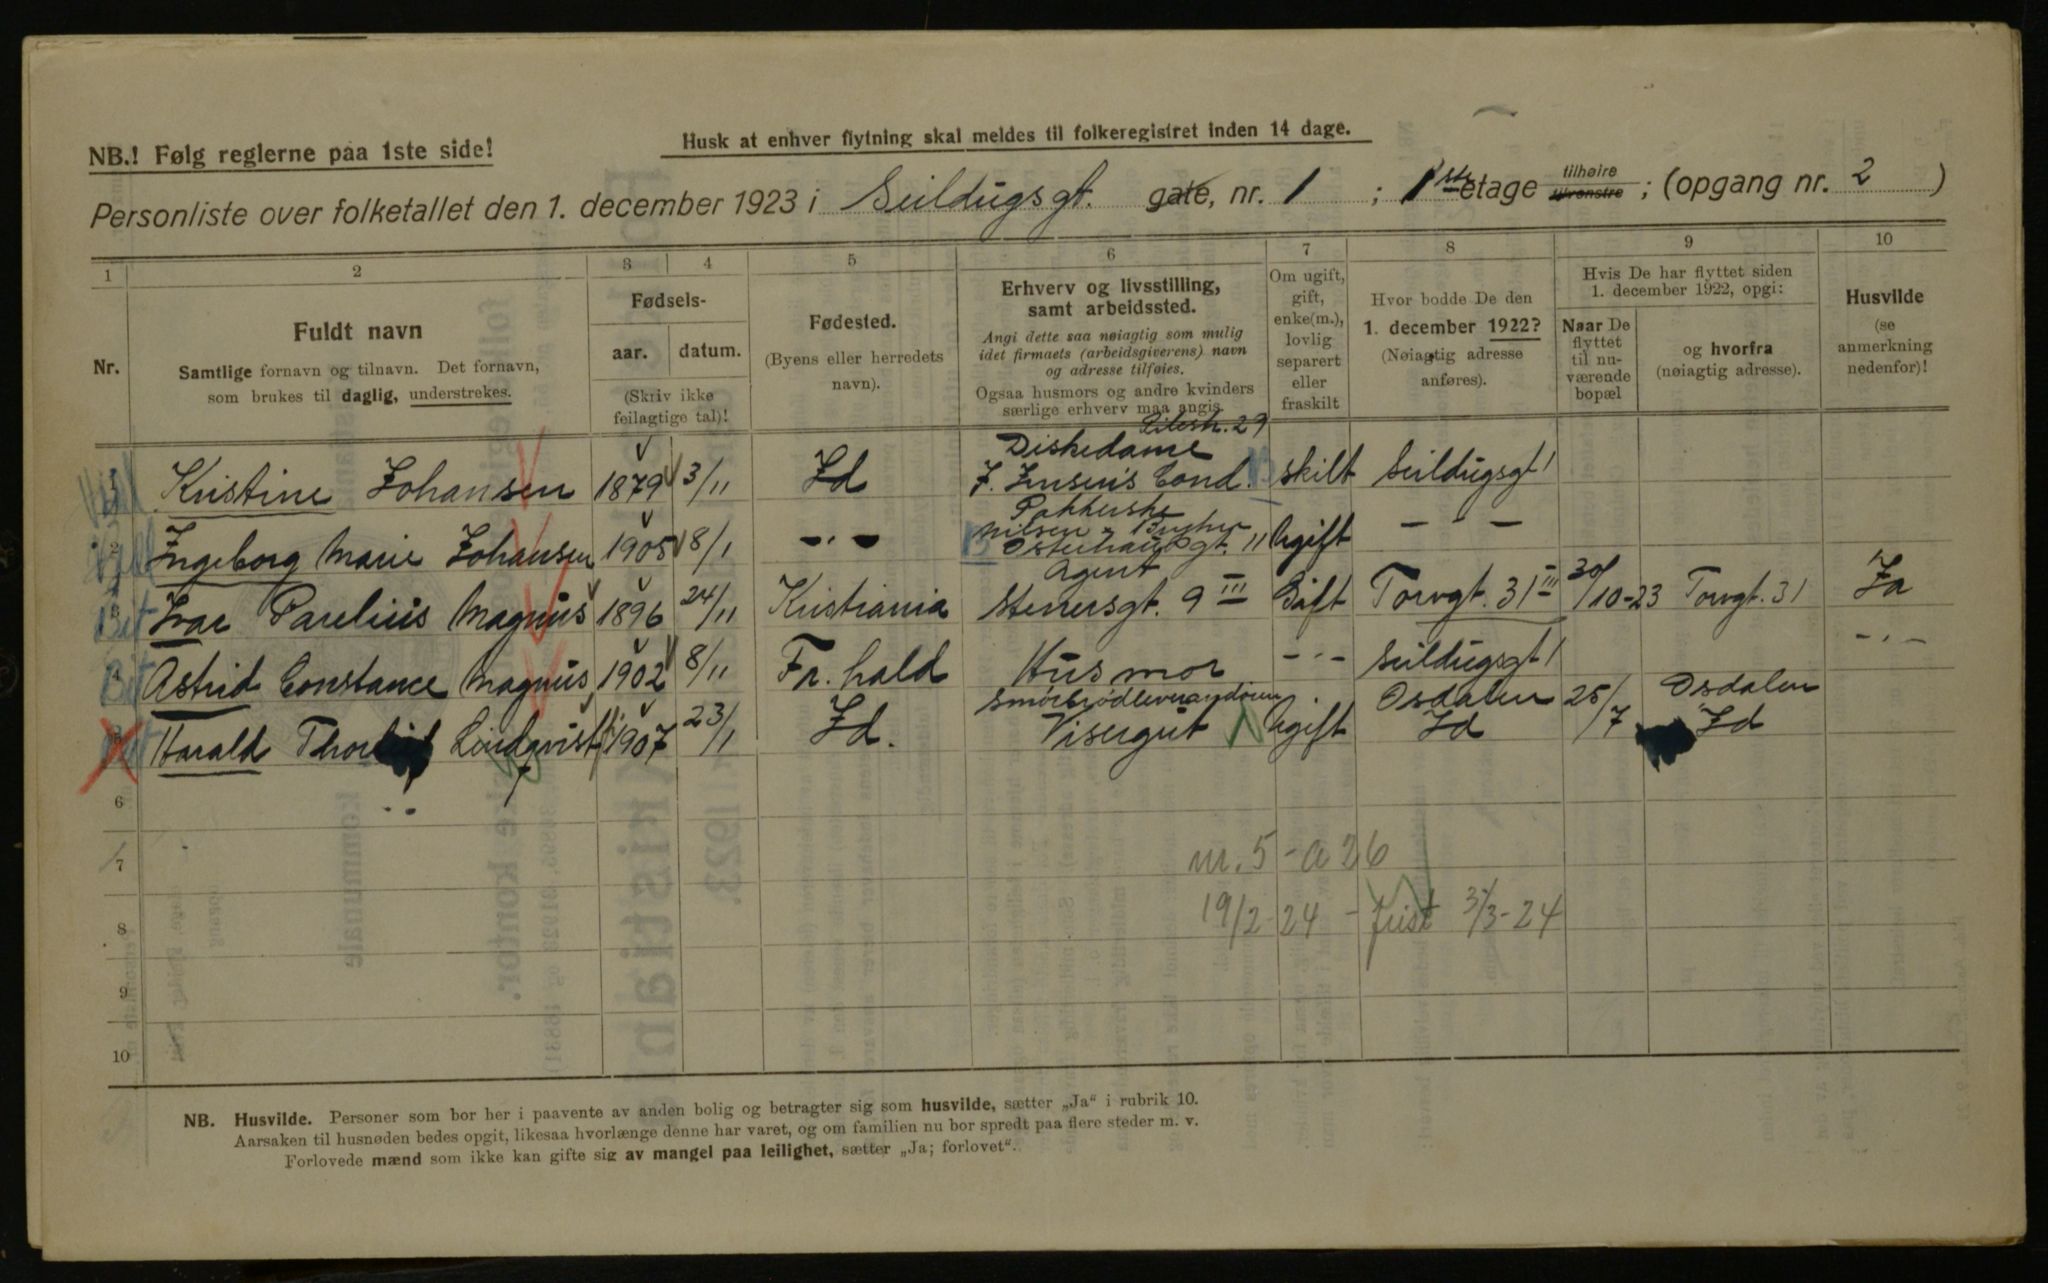 NB.! Følg reglerne paa 1ste side!
Husk at enhver flytning skal meldes til folkeregistret inden 14 dage.
Personliste over folketallet den 1. december 1923 i Seildugsgt. gate, nr. 1 ; 1ste etage tilhøire tilvenstre ; (opgang nr. 2 )
1 2 3 4 5 6 7 8 9 10
Nr.
Fuldt navn
Samtlige fornavn og tilnavn. Det fornavn,
som brukes til daglig, understrekes.
Fødsels-
aar. datum.
(Skriv ikke
feilagtige tal)!
Fødested.
(Byens eller herredets
navn).
Erhverv og livsstilling,
samt arbeidssted.
Angi dette saa nøiagtig som mulig
idet firmaets (arbeidsgiverens) navn
og adresse tilføies.
Ogsaa husmors og andre kvinders
særlige erhverv maa angis.
Om ugift,
gift,
enke(m.),
lovlig
separert
eller
fraskilt
Hvor bodde De den
1. december 1922?
(Nøiagtig adresse
anføres).
Hvis De har flyttet siden
1. december 1922, opgi:
Naar De
flyttet
til nu-
værende
bopæl
og hvorfra
(nøiagtig adresse).
Husvilde
(se
anmerkning
nedenfor)!
Pilestr. 29
Diskedame
1 Kristine Johansen 1879 3/11 Id J. Jensens Cond. skilt Seildugsgt 1
Pakkerske
Nilsen
2 Ingeborg Marie Johansen 1905 8/1 -"- Osterhausgt. 11 Ugift - " -
Agent
3 Ivar Paulius Magnus 1896 24/11 Kristiania Stenersgt. 9 III Gift Torvgt. 31 III 30/10-23 Torvgt. 31 Ja
4 Astrid Constance Magnus 1902 8/11 Fr. hald Husmor - " - Seildugsgt 1 - " -
Smørbrødleverandøren
5 Harald Lindqvist 1907 23/1 Id. Visergut Ugift Osdalen Id 25/7 Osdalen Id
6
7
nr. 5 - a 26
8
19/2 24 - Juist 3/3-24
9
10
NB. Husvilde. Personer som bor her i paavente av anden bolig og betragter sig som husvilde, sætter „Ja“ i rubrik 10.
Aarsaken til husnøden bedes opgit, likesaa hvorlænge denne har varet, og om familien nu bor spredt paa flere steder m. v.
Forlovede mænd som ikke kan gifte sig av mangel paa leilighet, sætter „Ja; forlovet“.